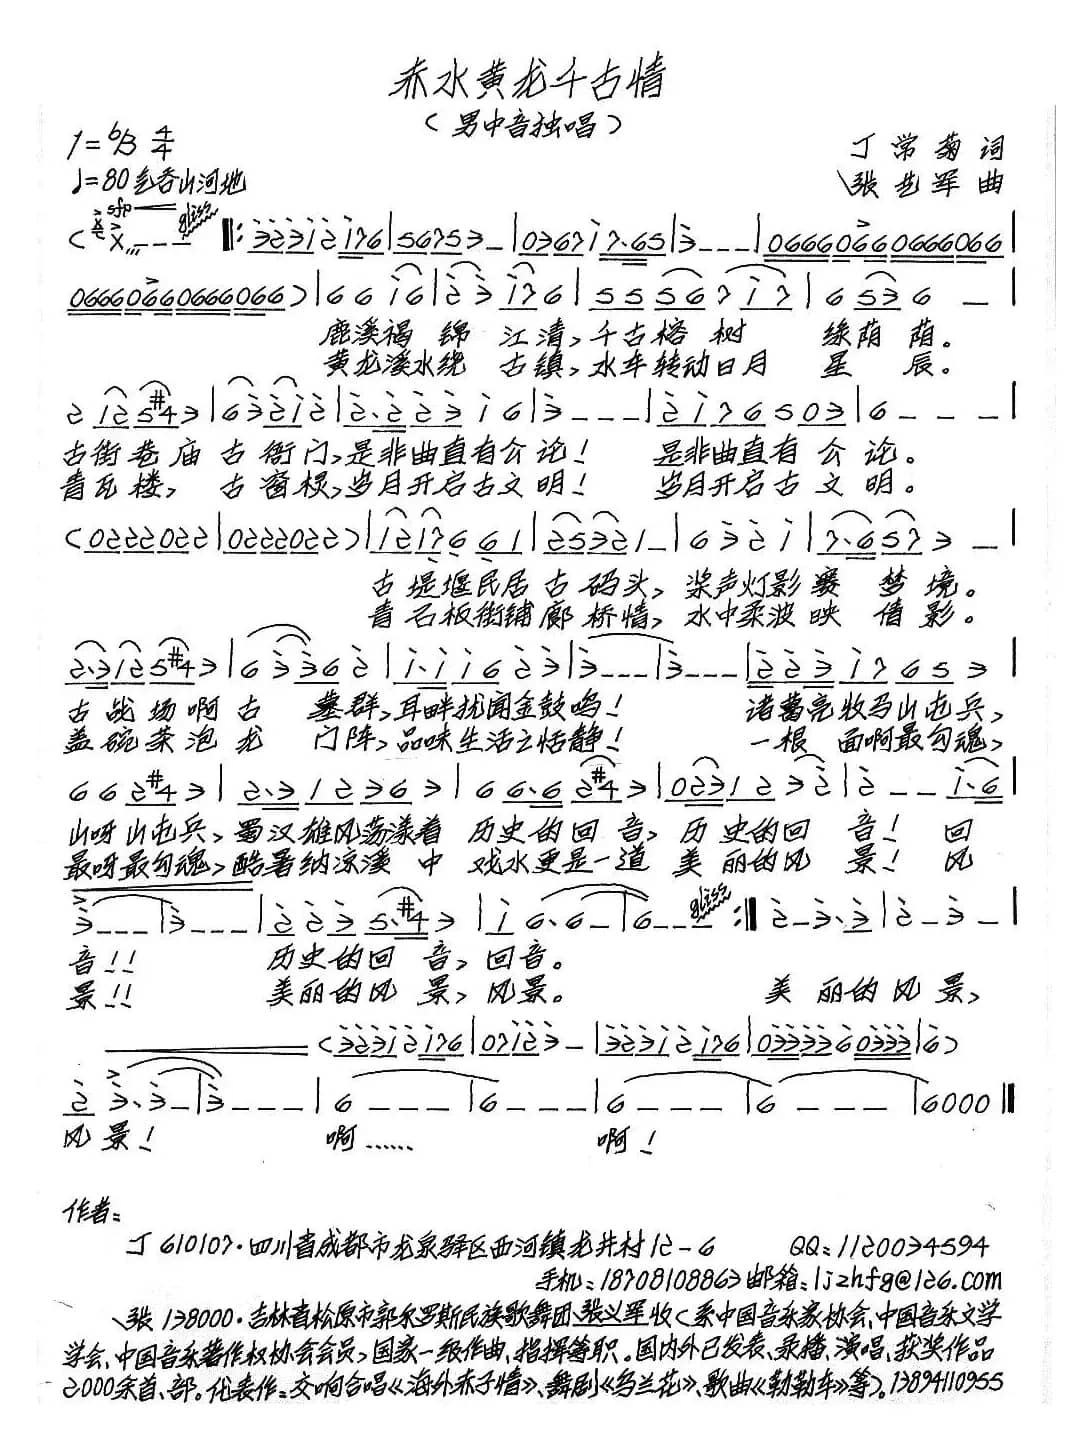 赤水黄龙千古情
（男中音独唱）
1=♭B 4/4
丁常菊 词
♩=80 气吞山河地
张艺军 曲
sfp gliss
鹿溪褐锦 江清，千古榕树 绿荫荫。
黄龙溪水绕 古镇，水车转动日月 星辰。
古街巷庙古衙门，是非曲直有公论！ 是非曲直有公论。
青瓦楼，古窗棂，岁月开启古文明！ 岁月开启古文明。
古堤堰民居古码头，桨声灯影赛梦境。
青石板街铺廊桥情，水中柔波映倩影。
古战场啊古 墓群，耳畔犹闻金鼓鸣！ 诸葛亮牧马山屯兵，
盖碗茶泡龙 门阵，品味生活之恬静！ 一根 面啊最勾魂，
山呀山屯兵，蜀汉雄风荡漾着 历史的回音，历史的回音！ 回
最呀最勾魂，酷暑纳凉溪中 戏水更是一道美丽的风景！ 风
gliss
音！！ 历史的回音，回音。
景！！ 美丽的风景，风景。 美丽的风景，
风景！ 啊…… 啊！
作者：
丁 610107·四川省成都市龙泉驿区西河镇龙井村12-6 QQ：1120034594
手机：18708108863 邮箱：ljzhfg@126.com
张 138000·吉林省松原市郭尔罗斯民族歌舞团张义军收（系中国音乐家协会、中国音乐文学
学会、中国音乐著作权协会会员，国家一级作曲，指挥等职。国内外已发表、录播、演唱、获奖作品
2000余首、部。代表作：交响合唱《海外赤子情》、舞剧《乌兰花》、歌曲《勒勒车》等）。13894110955